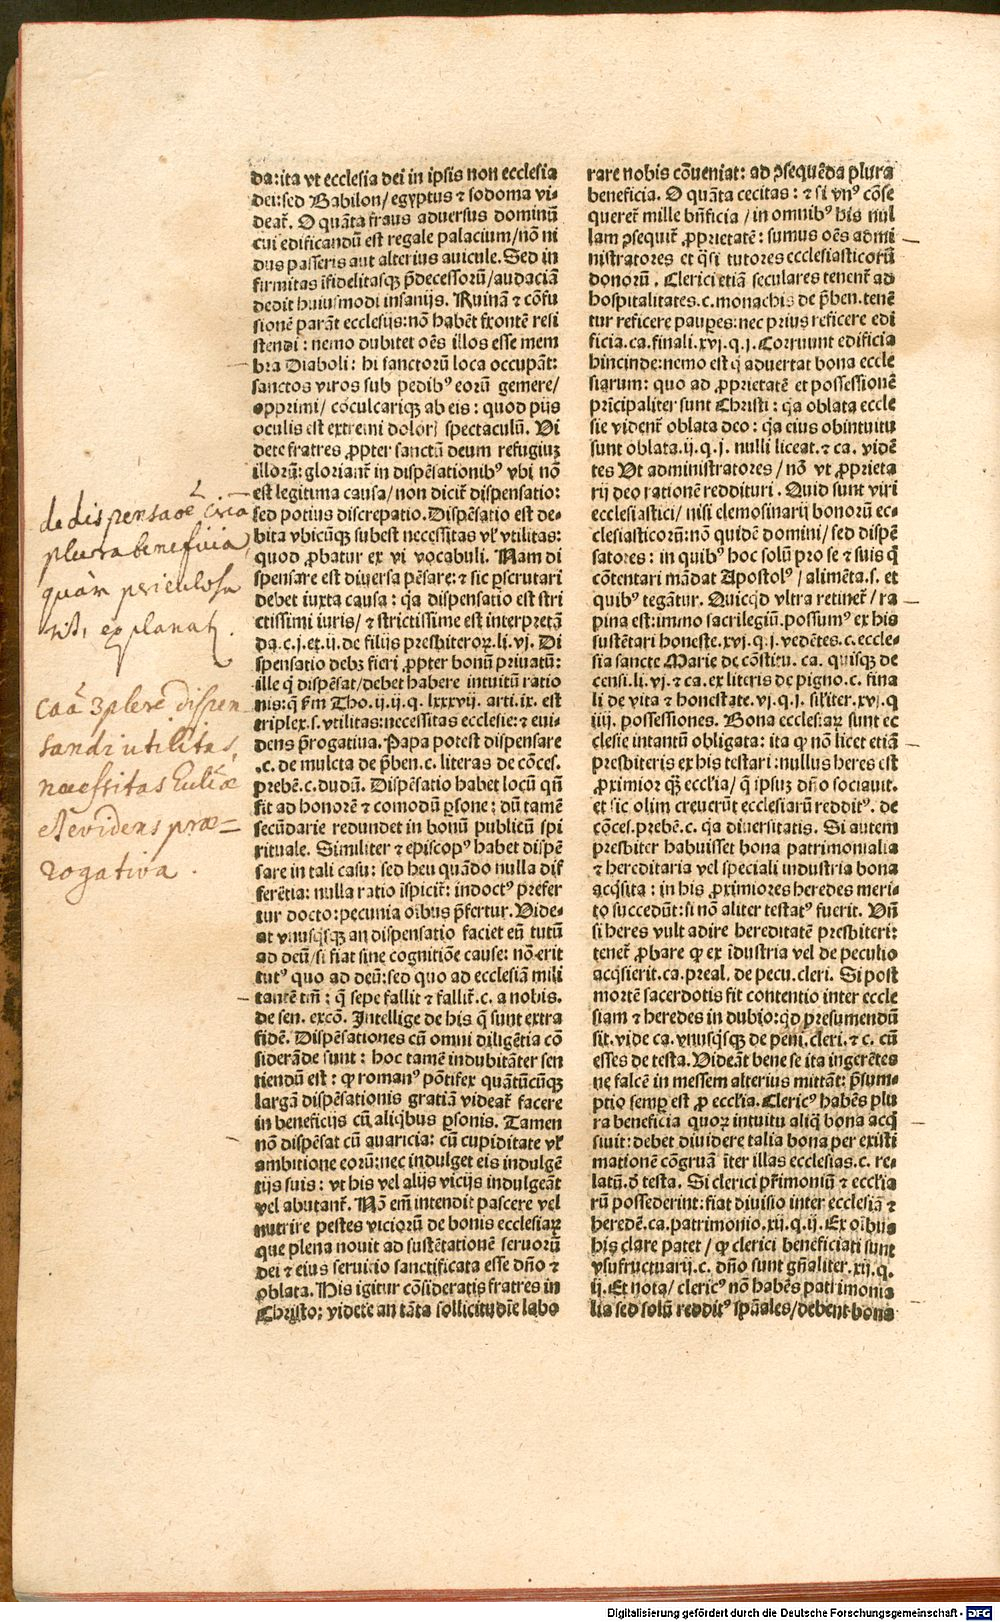 da:ita vt ecclesia dei in ipsis non ecclesia
dei:sed Babilon/egyptus ⁊ sodoma vi-
deat᷑. O quãta fraus aduersus dominũ
cui edificandũ est regale palacium/nõ ni
dus passeris aut alterius auicule. Sed in
firmitas ĩfidelitasqꝫ p̃decessorũ/audaciã
dedit huiusmodi insanijs. Ruinã ⁊ cõfu
sionẽ parãt ecclesijs:nõ habẽt frontẽ resi
stendi: nemo dubitet oẽs illos esse mem
bra Diaboli: hi sanctorũ loca occupãt:
sanctos viros sub pedibꝰ eorũ gemere/
opprimi/ cõculcariqꝫ ab eis: quod pijs
oculis est extremi dolorꝭ spectaculũ. Vi
dete fratres ꝓpter sanctũ deum refugiuꝫ
illorũ:gloriant᷑ in dispẽsationibꝰ vbi nõ
est legitima causa/non dicit᷑ dispensatio:
sed potius discrepatio. Dispẽsatio est de-
bita vbicũqꝫ subest necessitas vł vtilitas:
quod ꝓbatur ex vi vocabuli. Nam di
spensare est diuersa pẽsare:⁊ sic ꝑscrutari
debet iuxta causa: q̃a dispensatio est stri
ctissimi iuris/ ⁊ strictissime est interpretã
da.c.j.et.ij.de filijs presbiteroꝝ.li.vj. Di
spensatio debꝫ fieri ꝓpter bonũ priuatũ:
ille q̃ dispẽsat/debet habere intuitũ ratio
nis:q̃ ẜm Tho.ij.ij.q.lxxxvij.arti.ix. est
triplex.s.vtilitas:necessitas ecclesie:⁊ eui-
dens p̃rogatiua. Papa potest dispensare
.c. de multa de p̃ben.c. literas de cõces.
prebẽ.c.dudũ. Dispẽsatio habet locũ qñ
fit ad honorẽ ⁊ comodũ ꝑsone: dũ tamẽ
secũdarie redundet in bonũ publicũ spi
rituale. Similiter ⁊ episcopꝰ habet dispẽ
sare in tali casu: sed heu quãdo nulla dif
ferẽtia: nulla ratio ĩspicit᷑: indoctꝰ prefer
tur docto:pecunia oĩbus p̃fertur. Vide-
at vnusq̃sqꝫ an dispensatio faciet eũ tutũ
ad deũ/si fiat sine cognitiõe cause: nõ erit
tutꝰ quo ad deũ:sed quo ad ecclesiã mili
tantẽ tm̃: q̃ sepe fallit ⁊ fallit᷑.c. a nobis.
de sen. excõ. Intellige de his q̃ sunt extra
fidẽ. Dispẽsationes cũ omni diligẽtia cõ
siderãde sunt: hoc tamẽ indubitãter sen
tiendũ est: ꝙ romanꝰ põtifex quãtũcũqꝫ
largã dispẽsationis gratiã videat᷑ facere
in beneficijs cũ aliq̃bus ꝑsonis. Tamen
nõ dispẽsat cũ auaricia: cũ cupiditate vł
ambitione eorũ:nec indulget eis indulgẽ
tijs suis: vt his vel alijs vicijs indulgeãt
vel abutant᷑. Nõ em̃ intendit pascere vel
nutrire pestes viciorũ de bonis ecclesiaꝝ
que plena nouit ad sustẽtationẽ seruorũ
dei ⁊ eius seruicio sanctificata esse dño ⁊
oblata. His igitur cõsideratis fratres in
Christo: videte an tãta sollicitudĩe labo
rare nobis cõueniat: ad ꝓsequẽda plura
beneficia. O quãta cecitas: ⁊ si vnꝰ cõse
queret᷑ mille bñficia/in omnibꝰ his nul
lam ꝯsequit᷑ ꝓprietatẽ: sumus oẽs admi
nistratores et q̃si tutores ecclesiasticorũ
donorũ. Clerici etiã seculares tenent᷑ ad
hospitalitates.c.monachis de p̃ben.tenẽ
tur reficere pauꝑes:nec prius reficere edi
ficia.ca.finali.xvj.q.j.Corruunt edificia
hincinde:nemo est q̃ aduertat bona eccle
siarum: quo ad ꝓprietatẽ et possessionẽ
prĩcipaliter sunt Christi: q̃a oblata eccle
sie vident᷑ oblata deo: q̃a eius obintuitu
sunt oblata.ij.q.j. nulli liceat.⁊ ca. vidẽ
tes Vt administratores/ nõ vt ꝓprieta
rij deo rationẽ reddituri. Quid sunt viri
ecclesiastici/ nisi elemosinarij bonorũ ec-
clesiasticorũ:nõ quidẽ domini/ sed dispẽ
satores: in quibꝰ hoc solũ pro se ⁊ suis q̃
cõtentari mãdat Apostolꝰ/alimẽta.s. et
quibꝰ tegãtur. Quicq̃d vltra retinet᷑/ ra
pina est:immo sacrilegiũ.possumꝰ ex his
sustẽtari honeste.xvj.q.j.vedẽtes.c.eccle-
sia sancte Marie de cõstitu. ca. quisqꝫ de
censi.li.vj.⁊ ca.ex literis de pigno.c. fina
li de vita ⁊ honestate.vj.q.j. siłiter.xvj.q
iiij. possessiones. Bona ecclesiaꝝ sunt ec
clesie intantũ obligata: ita ꝙ nõ licet etiã
presbiteris ex his testari:nullus heres est
ꝓximior q̃ꝫ eccłia/ q̃ ipsuꝫ dño sociauit.
et sic olim creuerũt ecclesiarũ redditꝰ. de
cõces.prebẽ.c. q̃a diuersitatis. Si autem
presbiter habuisset bona patrimonialia
⁊ hereditaria vel speciali industria bona
acq̃sita: in his ꝓximiores heredes meri-
to succedũt:si nõ aliter testatꝰ fuerit. Vñ
si heres vult adire hereditatẽ presbiteri:
tenet᷑ ꝓbare ꝙ ex ĩdustria vel de peculio
acq̃sierit.ca.preał. de pecu.cleri. Si post
mortẽ sacerdotis fit contentio inter eccle
siam ⁊ heredes in dubio:qd presumendũ
sit.vide ca.vnusq̃sqꝫ de peni.cleri.⁊ c. cũ
esses de testa.Videãt bene se ita ingerẽtes
ne falcẽ in messem alterius mittãt: p̃sum-
ptio semꝑ est ꝓ eccłia.Clericꝰ habẽs plu
ra beneficia quoꝝ intuitu aliq̃ bona acq̃
siuit: debet diuidere talia bona per existi
mationẽ cõgruã ĩter illas ecclesias.c. re-
latũ.ð testa. Si clerici pr̃imoniũ ⁊ eccłia
rũ possederint:fiat diuisio inter ecclesiã ⁊
heredẽ.ca.patrimonio.xij.q.ij. Ex oĩbus
his clare patet/ ꝙ clerici beneficiati sunt
vsufructuarij.c. dño sunt gñaliter.xij.q.
ij.Et nota/ clericꝰ nõ habẽs patrimonia
lia sed solũ redditꝰ spũales/debent bona
de dispensaõe circa
plura beneficia,
quàm periculosa
sit, explanat᷑.
caã 3plex dispen
sandi utilitas,
necessitas Eccłiæ
et evidens præ=
rogativa.
Digitalisierung gefördert durch die Deutsche Forschungsgemeinschaft - DFG